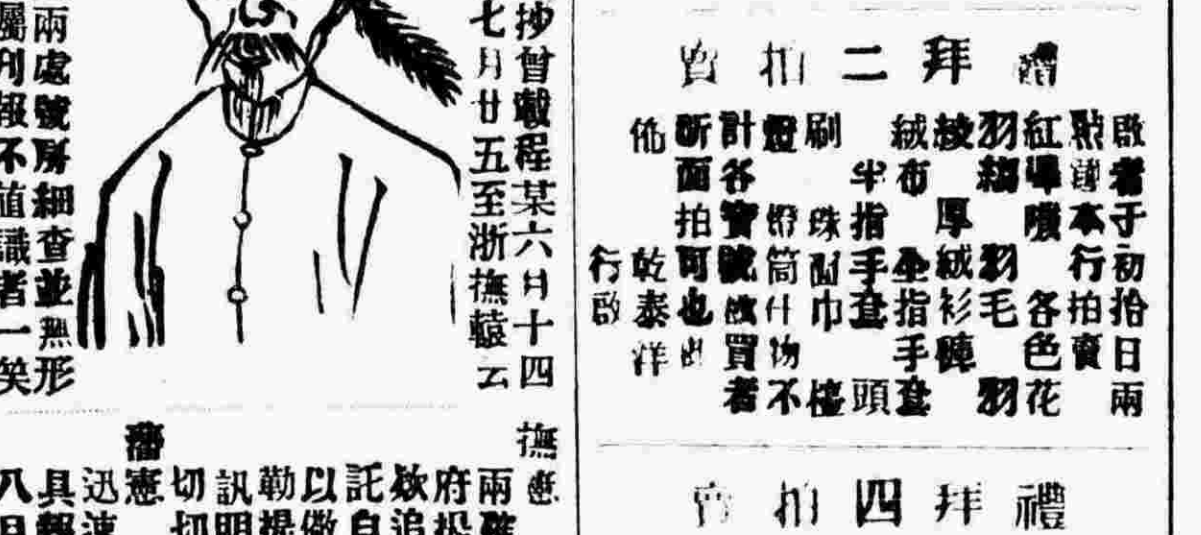 禮拜二拍賣
啟者于初拾日兩
點鐘本行拍賣
紅嗶嘰 各色花
羽緞 羽毛 羽
綾 厚絨衫
絨布 全指手套
半指手套 頭
刷 珠 面巾 檯
燈 燈筒什物不
計各寶號欲買者
祈面拍可也此
佈 乾泰洋
行啟
禮拜四拍賣
抄曾載程某六月十四
七月廿五至浙撫轅云
兩處號房細查並無形
屬刊報不值識者一笑
撫憲
兩
府投
欵追
託自
以儆
勒提
訊明
切切
藩憲
迅速
具報
八日